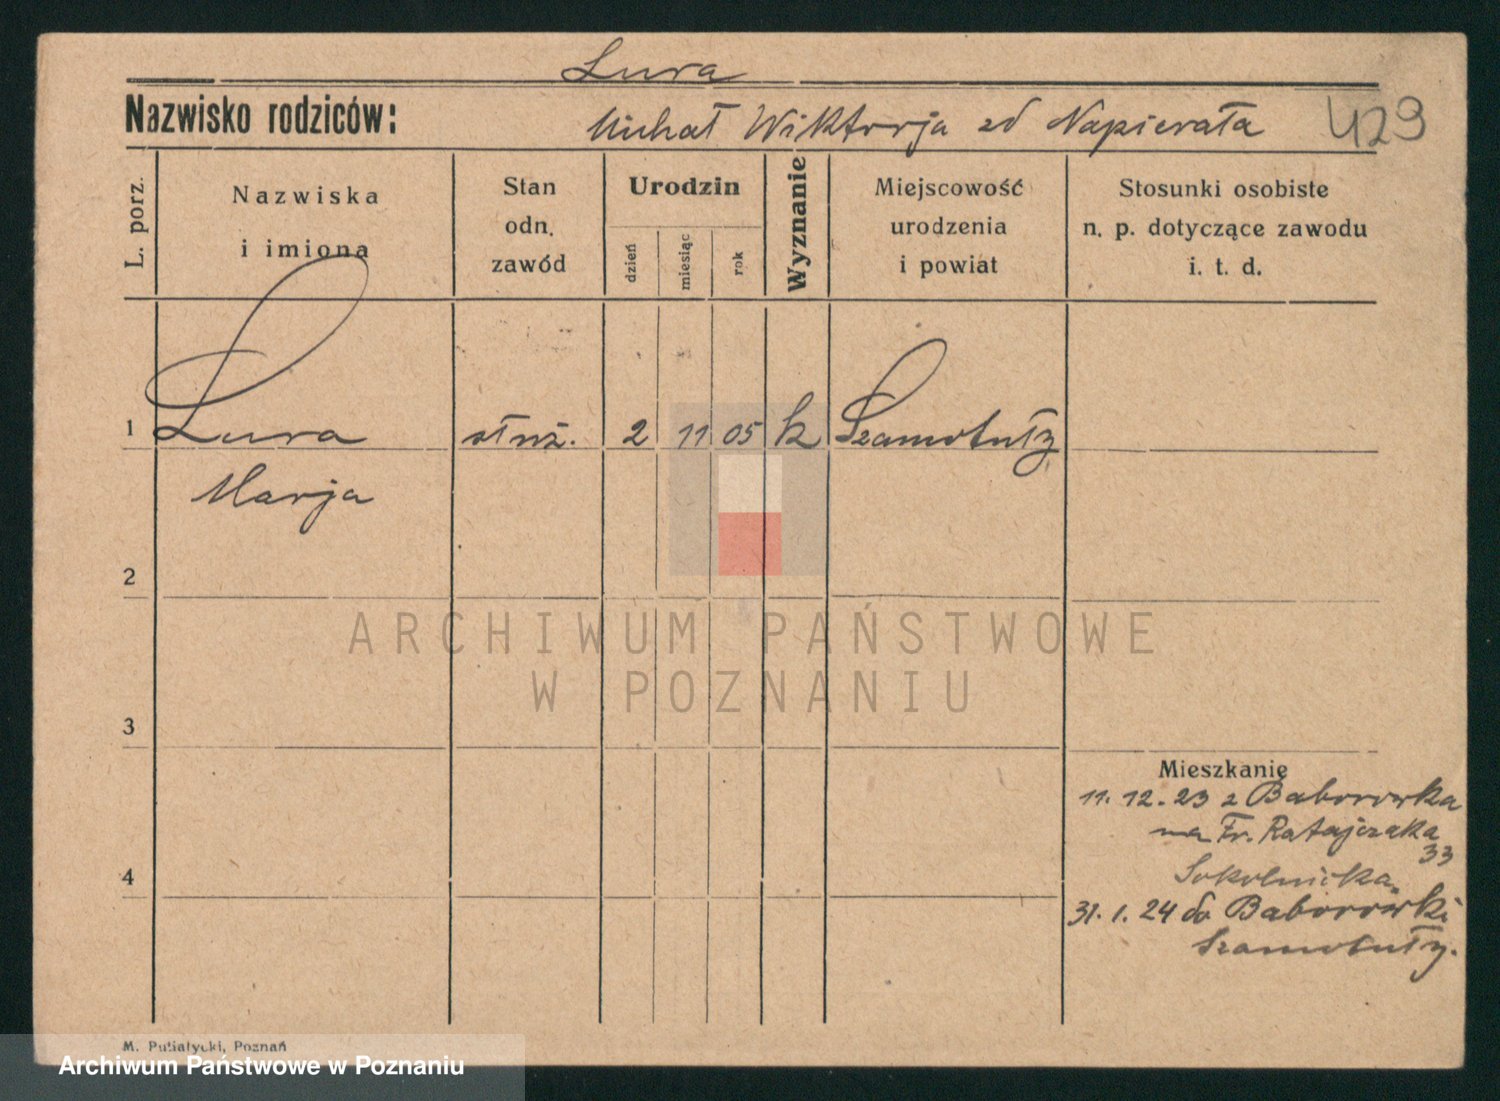 Lura
Nazwisko rodziców:
Michał Wiktorja zd Napierała
429
L. porz.
Nazwiska
i imiona
Stan
odn.
zawód
Urodzin
dzień
miesiąc
rok
Wyznanie
Miejscowość
urodzenia
i powiat
Stosunki osobiste
n. p. dotyczące zawodu
i. t. d.
1 Lura służ. 2 11 05 k Szamotuły
Marja
2
ARCHIWUM PAŃSTWOWE
W POZNANIU
3
Mieszkanie
11. 12. 23 z Baborowka
na Fr. Ratajczaka
33
Sokolnicka
4
31. 1. 24 do Baborowki
Szamotuły.
M. Putiatycki, Poznań
Archiwum Państwowe w Poznaniu